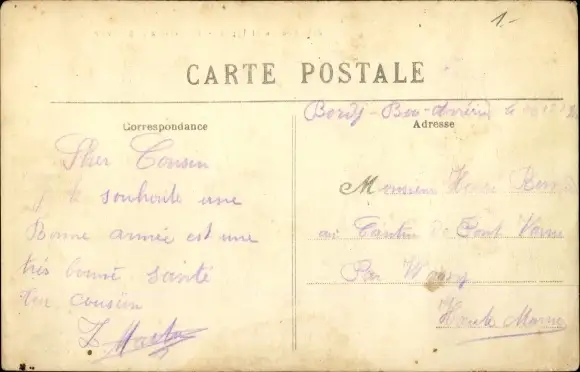 1.-
CARTE POSTALE
Correspondance
Adresse
Bordj-Bou-Arréridj le
Cher Cousin
je te souhoite une
Bonne année est une
très bonne sainté
ton cousin
Monsieur Henri
au Cantin de Pont Varin
Par Wassy
Haute Marne